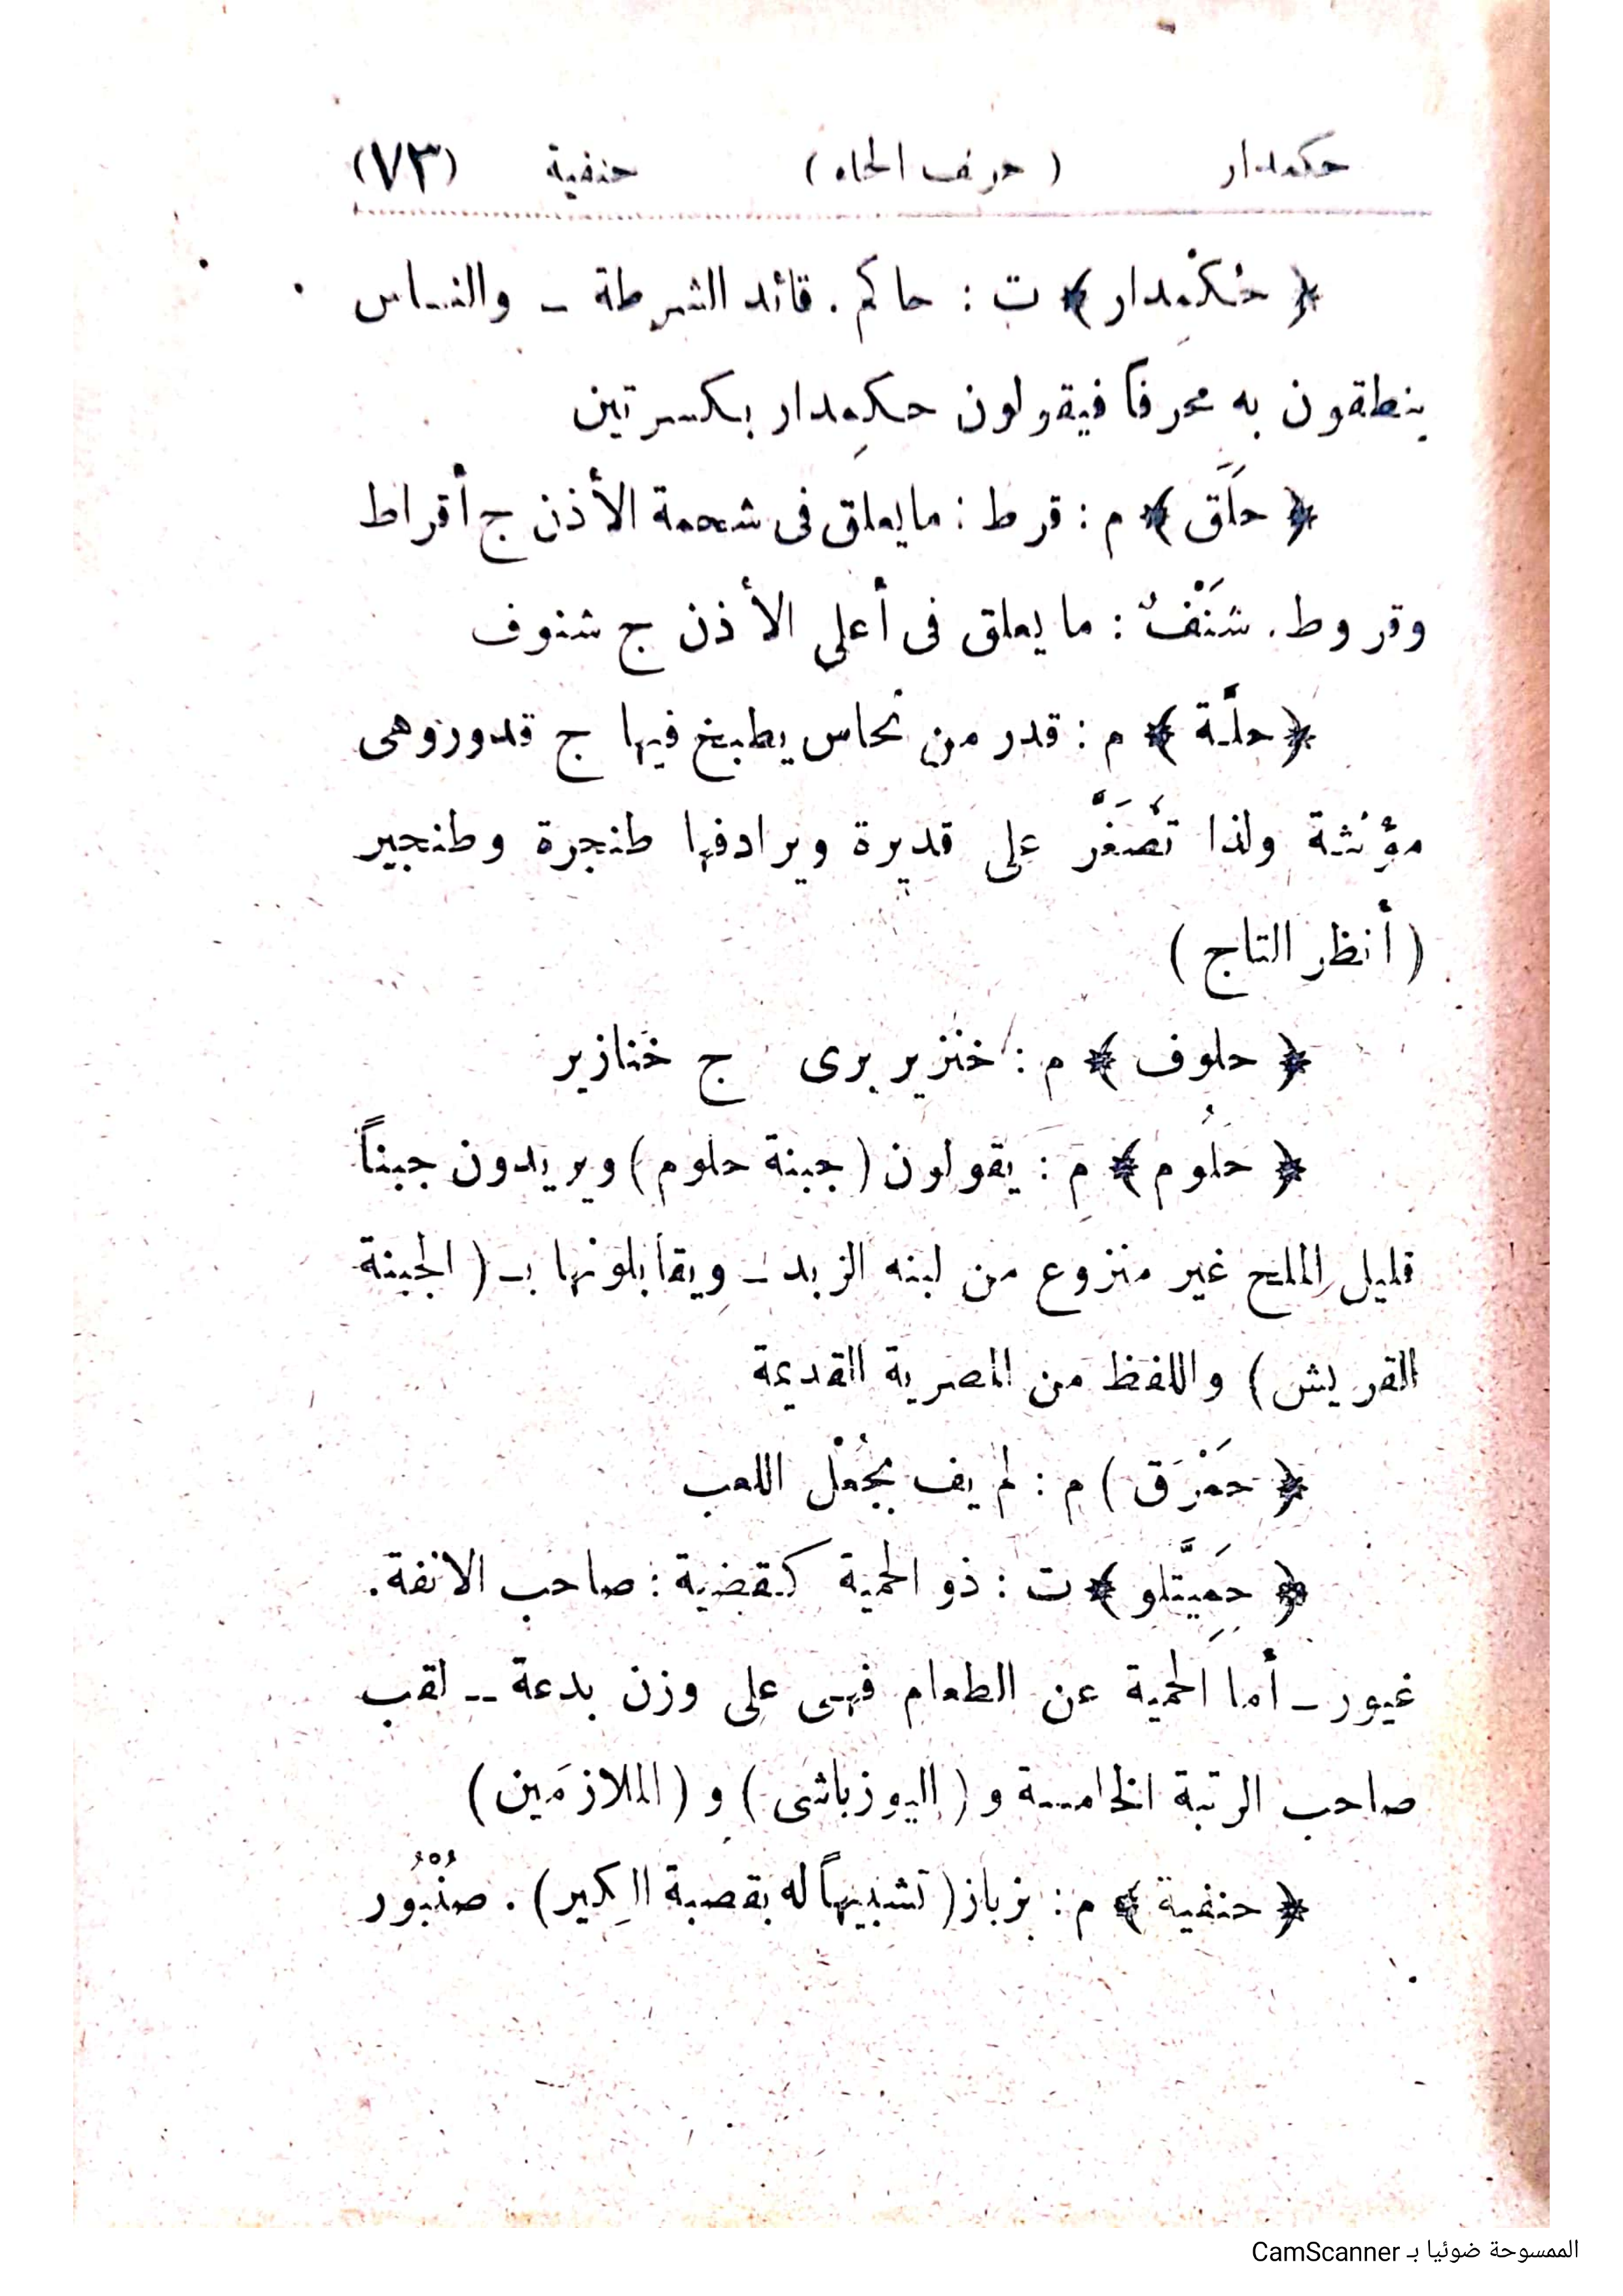 حكمدار ( حرف الحاء ) حنفية (٧٣)
﴿ حُكمْدِار ﴾ ت : حاكم . قائد الشرطة ـ والناس
ينطقون به محرفاً فيقولون حكمِدار بكسرتين
﴿ حلَق ﴾ م : قرط : ما يعلق فى شحمة الأذن ج أقراط
وقروط . شَنْفُ : ما يعلق فى أعلى الأذن ج شنوف
﴿ حلَّة ﴾ م : قدر من نحاس يطبخ فيها ج قدور وهى
مؤنثة ولذا تُصَغَّر على قديرة ويرادفها طنجرة وطنجير
( أنظر التاج )
﴿ حلوف ﴾ م : خنزير برى ج خنازير
﴿ حلُوم ﴾ م : يقولون ( جبنة حلوم ) ويريدون جبناً
قليل الملح غير منزوع من لبنه الزبد ـ ويقابلونها بـ ( الجبنة
القريش ) واللفظ من المصرية القديمة
﴿ حَمْرَق ) م : لم يف بجُعْل اللعب
﴿ حَمِيَّتلو ﴾ ت : ذو الحمية كقضية : صاحب الانفة .
غيور ـ أما الحمية عن الطعام فهى على وزن بدعة ـ لقب
صاحب الرتبة الخامسة و ( اليوزباشى ) و ( الملازمين )
﴿ حنفية ﴾ م : بزباز ( تشبيهاً له بقصبة الكير ) . صُنْبُور
الممسوحة ضوئيا بـ CamScanner